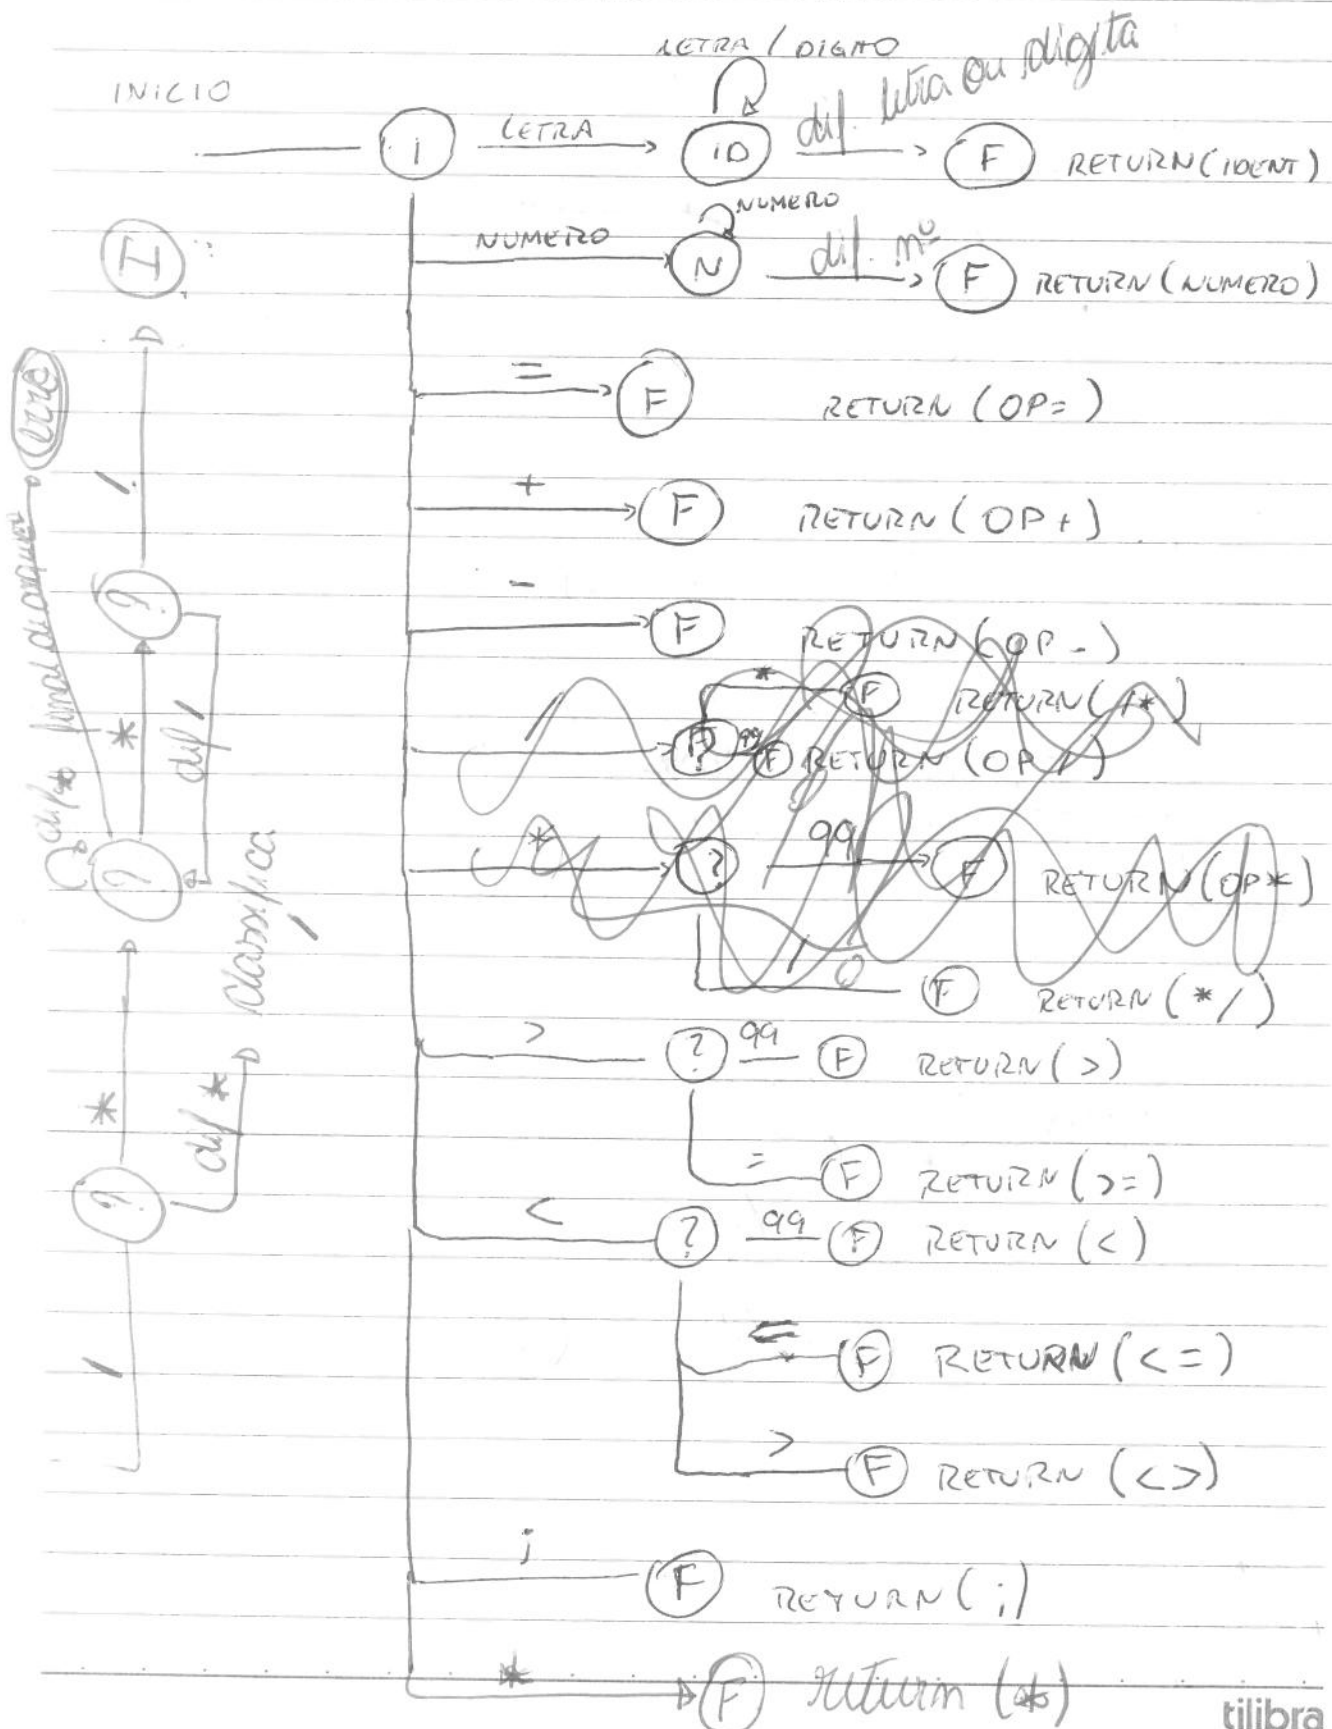 LETRA / DIGITO
dif. letra ou digita
INICIO
i LETRA ID F RETURN (IDENT)
NUMERO
NUMERO N dif. nº F RETURN (NUMERO)
= F RETURN (OP=)
+ F RETURN (OP+)
- F RETURN (OP-)
* F RETURN (/*)
/ ? 99 F RETURN (OP/)
* ? 99 F RETURN (OP*)
/ F RETURN (*/)
> ? 99 F RETURN (>)
= F RETURN (>=)
< ? 99 F RETURN (<)
= F RETURN (<=)
> F RETURN (<>)
; F RETURN (;)
* F return (*)
/
?
*
dif *
classifica /
?
dif *
final de arquivo
erro
*
dif /
?
/
F
tilibra